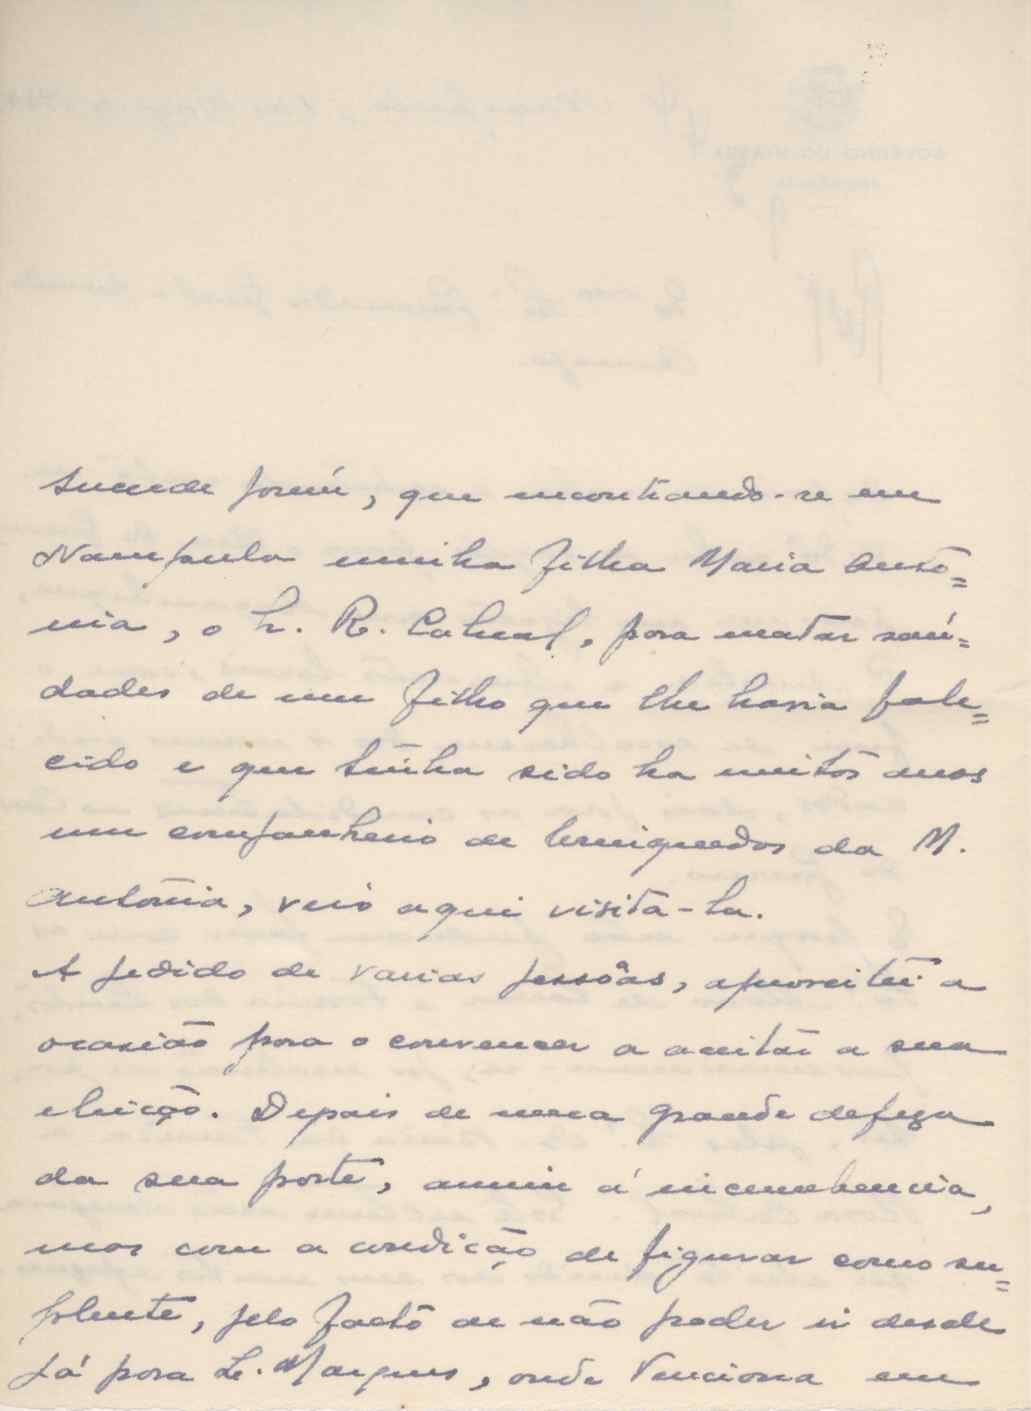 Sucede porém, que encontrando-se em
Nampula minha filha Maria Antó=
nia, o Sr. R. Cabral, para matar saú=
dades de um filho que lhe havia fale=
cido e que tinha sido ha muitos anos
um companheiro de brinquedos da M.
Antónia, veio aqui visitá-la.
A pedido de varias pessôas, aproveitei a
ocasião para o convencer a aceitar a sua
eleição. Depois de uma grande defeza
da sua parte, anuiu á incumbencia,
mas com a condição de figurar como su=
plente, pelo facto de não poder ir desde
já para L. Marques, onde tenciona em